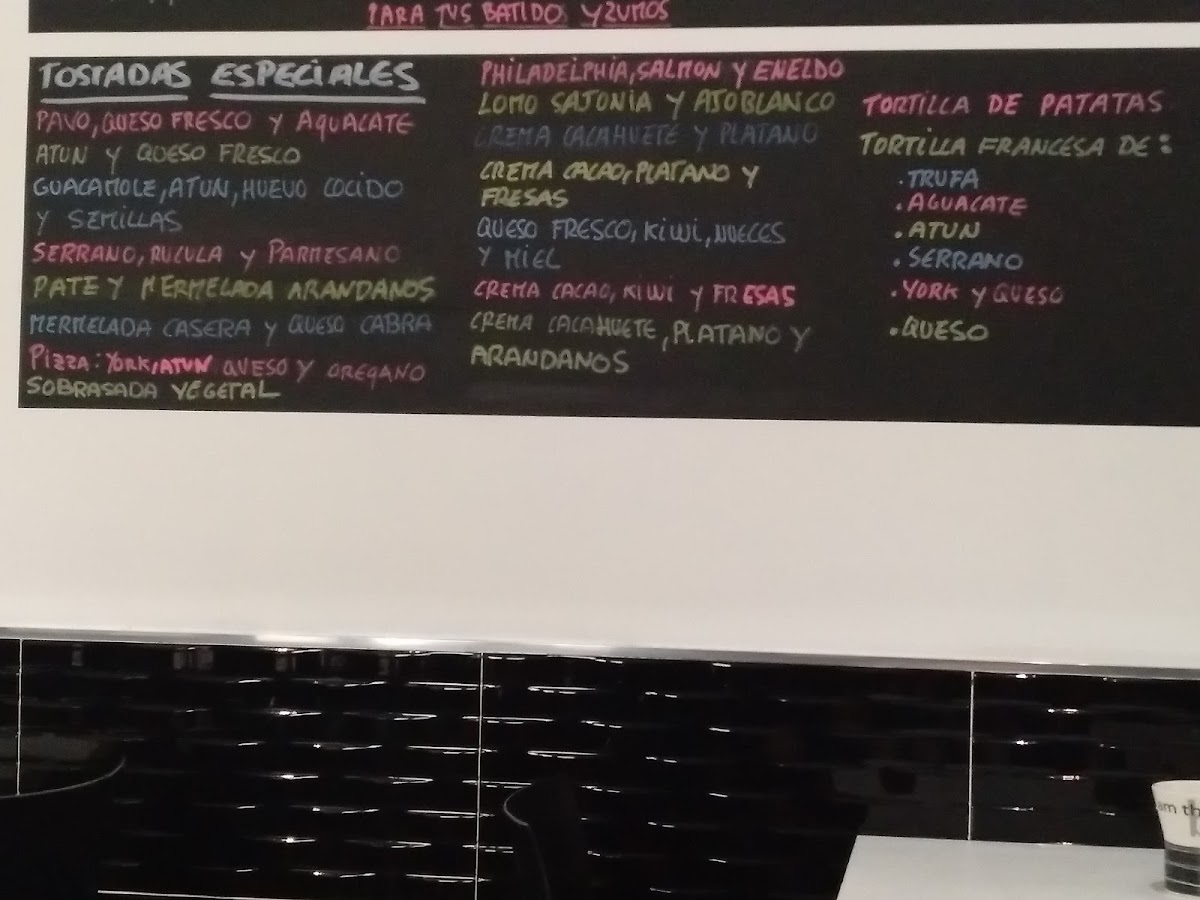 PARA TUS BATIDO YZUMOS
TOSTADAS ESPECIALES
PAVO, QUESO FRESCO Y AQUACATE
ATUN Y QUESO FRESCO
GUACAMOLE, ATUN, HUEVO COCIDO
Y SEMILLAS
SERRANO, RUCULA Y PARMESANO
PATE Y MERMELADA ARANDANOS
MERMELADA CASERA Y QUESO CABRA
PIZZA: YORK, ATUN QUESO Y OREGANO
SOBRASADA VEGETAL
PHILADELPHIA, SALMON Y ENELDO
LOMO SAJONIA Y AJOBLANCO
CREMA CACAHUETE Y PLATANO
CREMA CACAO, PLATANO Y
FRESAS
QUESO FRESCO, KIWI, NUECES
Y MIEL
CREMA CACAO, KIWI Y FRESAS
CREMA CACAHUETE, PLATANO Y
ARANDANOS
TORTILLA DE PATATAS
TORTILLA FRANCESA DE:
.TRUFA
.AGUACATE
.ATUN
.SERRANO
.YORK Y QUESO
.QUESO
am th